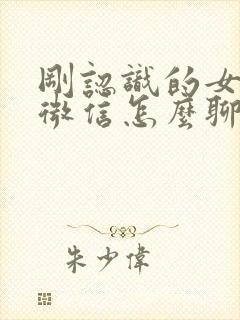 剛認識的女
微信怎麼聊
朱少偉